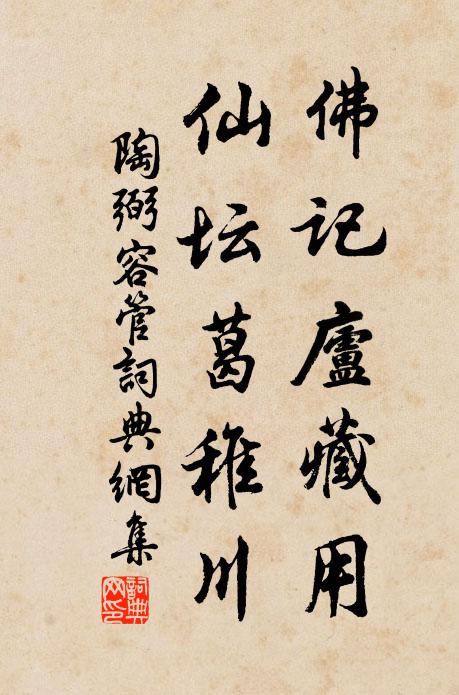 佛记廬藏用
仙坛葛稚川
陶弼容管詞典網集
詞典網印